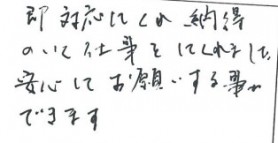 即対応してくれ 納得
のいく仕事をしてくれました。
安心してお願いする事が
できます